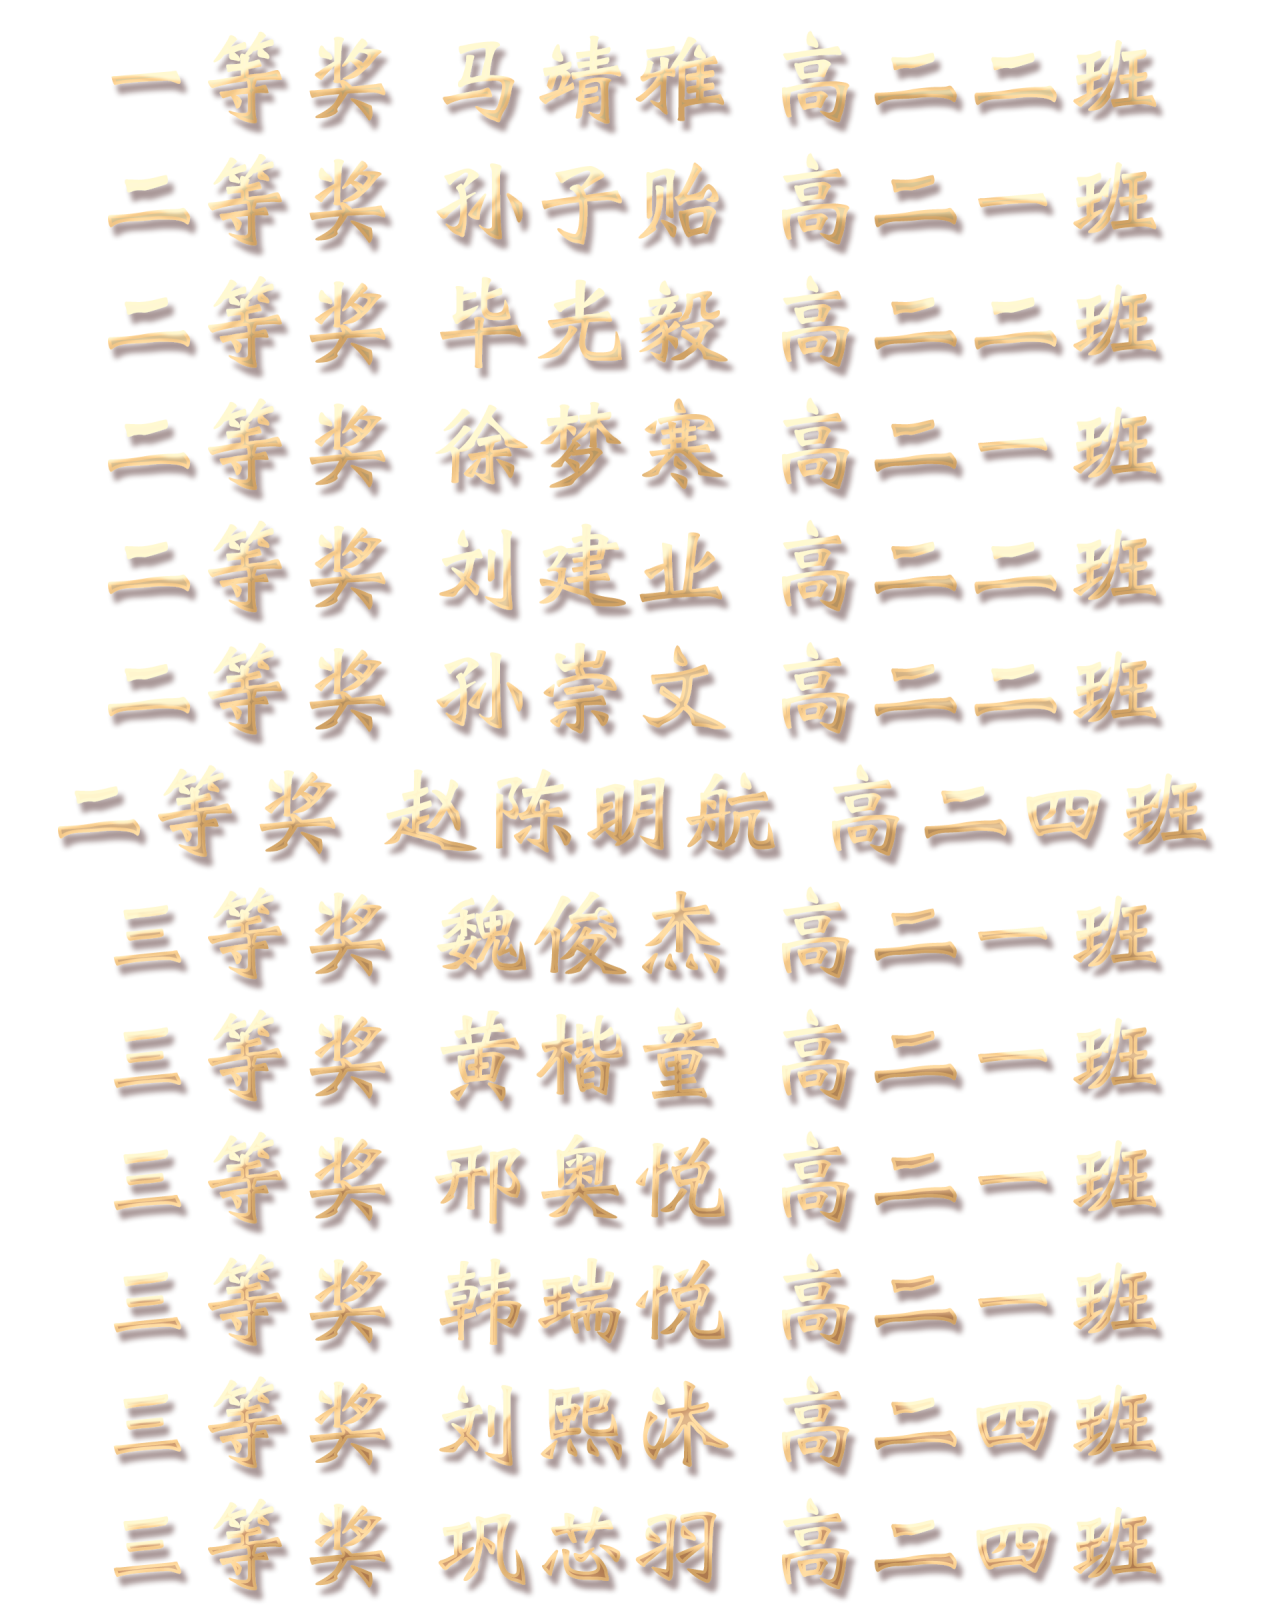 一等奖 马靖雅 高二二班
二等奖 孙子贻 高二一班
二等奖 毕光毅 高二二班
二等奖 徐梦寒 高二一班
二等奖 刘建业 高二二班
二等奖 孙崇文 高二二班
二等奖 赵陈明航 高二四班
三等奖 魏俊杰 高二一班
三等奖 黄楷童 高二一班
三等奖 邢奥悦 高二一班
三等奖 韩瑞悦 高二一班
三等奖 刘熙沐 高二四班
三等奖 巩芯羽 高二四班